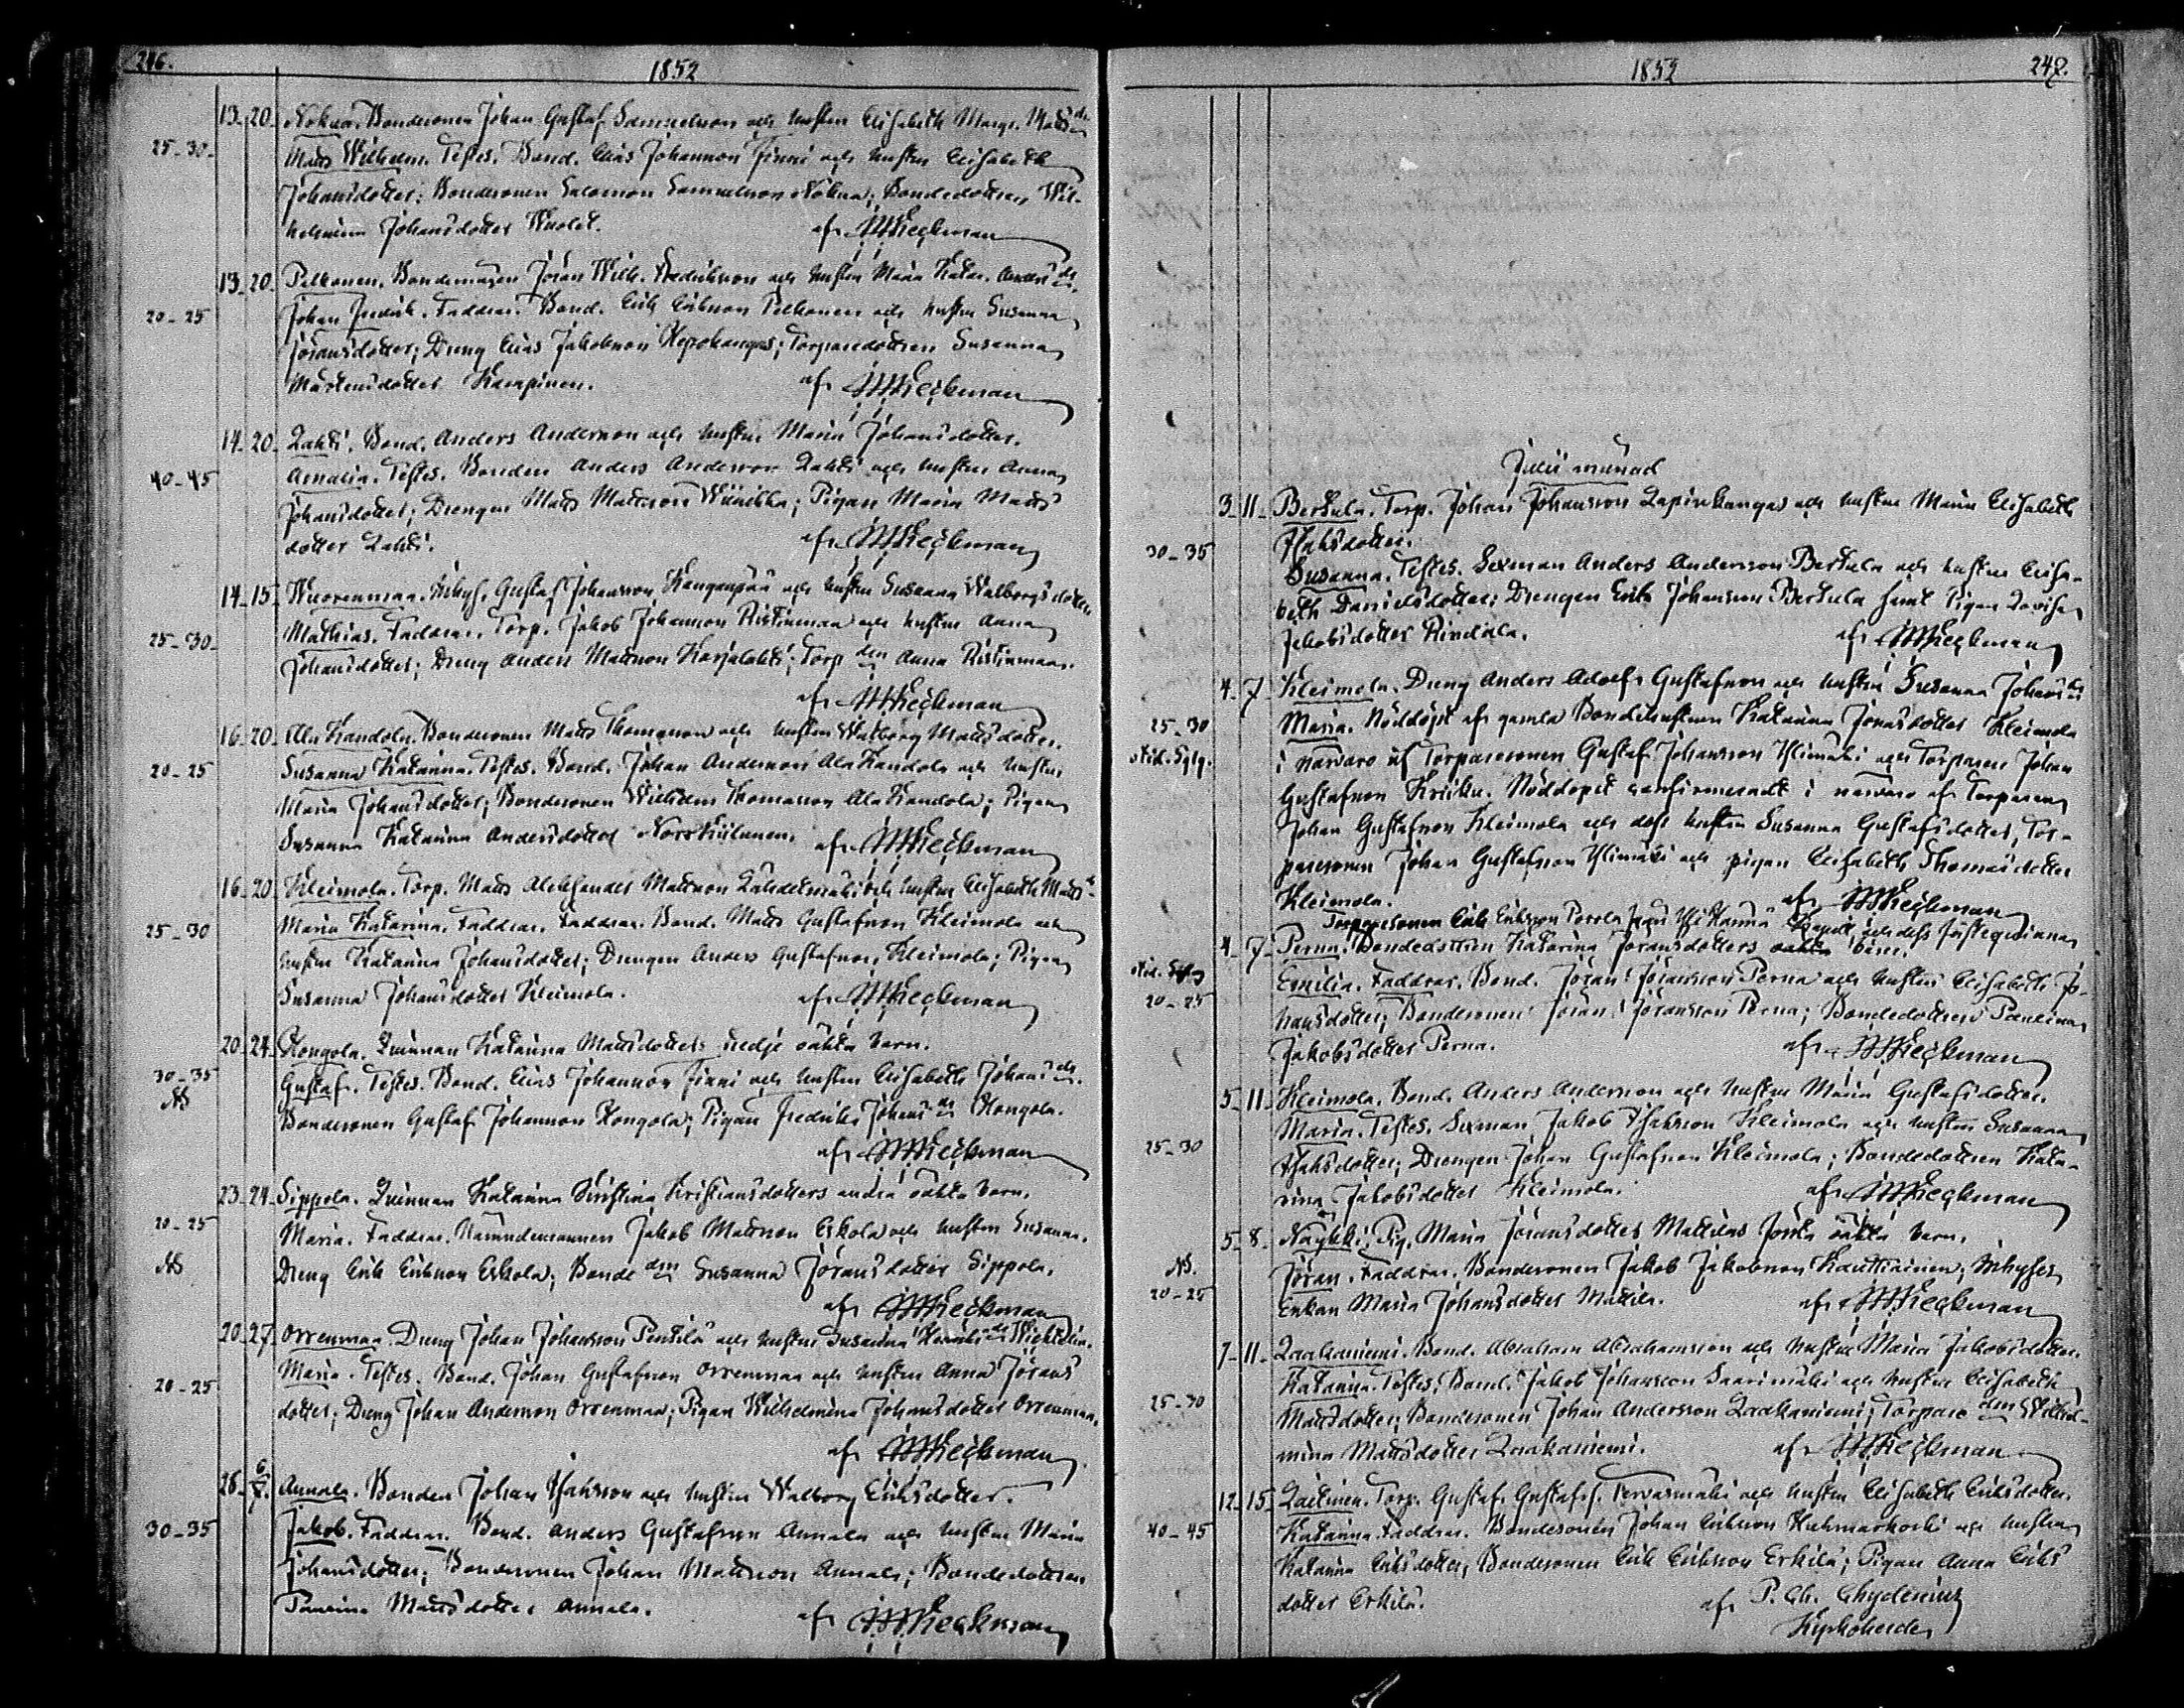 246.
1852
13 - 20. Nokua. Bondesonen Johan Gustaf Samuelsson och hustru Elisabeth Margr. Mattsdr
25 - 30. Matts Wilhelm. Testes. Bond. Elias Johansson Finni och hustru Elisabeth
Johansdotter; Bondesonen Salomon Samuelsson Nokua; Bondedottren Wil-
helmina Johansdotter Wuolet. af
13 - 20. Pelkonen. Bondemågen Jöran Wilh. Fredriksson och hustru Maria Katar. Andersdr.
20 - 25 Johan Fredrik. Faddrar. Bond. Erik Eriksson Pelkonen och hustru Susanna
Jöransdotter; Dreng Elias Jakobsson Repokangas; Torparedottren Susanna
Mårtensdotter Karppinen. af
14 - 20. Lahti. Bond. Anders Andersson och hustru Maria Johansdotter.
40 - 45 Amalia. Testes. Bonden Anders Andersson Lahti och hustru Anna
Johansdotter; Drengen Matts Mattsson Wiinikka; Pigan Maria Matts
dotter Lahti. af
14 - 15. Wuorenmaa. Inhys. Gustaf Johansson Kangaspää och hustru Susanna Walborgsdotter
25 - 30. Mathias. Faddrar. Torp. Jakob Johansson Ristinmaa och hustru Anna
Johansdotter; Dreng Anders Mattsson Karjalahti; Torp den Anna Ristinmaa.
af
16 - 20. Ala Kandola. Bondesonen Matts Thomasson och hustru Walborg Mattsdotter.
20 - 25 Susanna Katarina. Testes. Bond. Johan Andersson Ala Kandola och hustru
Maria Johansdotter; Bondesonen Wilhelm Thomasson Ala Kandola; Pigan
Susanna Katarina Andersdotter Norrkiilunen. af
16 - 20. Kleimola. Torp. Matts Alexander Mattsson Lähdetmäki och hustru Elisabeth Mattsd
25 - 30 Maria Katarina. Faddrar. Faddrar. Bond. Matts Gustafsson Kleimola och
hustru Katarina Johansdotter; Drengen Anders Gustafsson Kleimola; Pigan
Susanna Johansdotter Kleimola. af
20 - 24. Kongola. Quinnan Katarina Mattsdotters tredje oäkta barn.
30 - 35 Gustaf. Testes. Bond. Elias Johansson Finni och hustru Elisabeth Johansdr.
NB Bondesonen Gustaf Johansson Kongola; Pigan Fredrika Johansdr Kongola.
af
23 - 24. Sippola. Quinnan Katarina Kristina Kristiansdotters andra oäkta barn.
20 - 25 Maria. Faddrar. Nämndemannen Jakob Mattsson Erkola och hustru Susanna.
NB Dreng Erik Eriksson Erkola; Bonde den Susanna Jöransdotter Sippola.
af
20 - 27. Orrenmaa. Dreng Johan Johansson Pentilä och hustru Susanna
20 - 25 Maria. Testes. Bond. Johan Gustafsson Orrenmaa och hustru Anna Jörans
dotter; Dreng Johan Andersson Orrenmaa; Pigan Wilhelmina Johansdotter Orrenmaa.
af
26 - 6/7. Annala. Bonden Johan Isaksson och hustru Walborg Eriksdotter.
30 - 35 Jakob. Faddrar. Bond. Anders Gustafsson Annala och hustru Maria
Johansdotter; Bondesonen Johan Mattsson Annala; Bondedottren
Paulina Mattsdotter Annala. af
1852
247.
Julii månad
3 - 11. Berkula. Torp. Johan Johansson Lapinkangas och hustru Maria Elisabeth
30 - 35 Isaksdotter.
Susanna. Testes. Sexman Anders Andersson Berkula och hustru Elisa-
beth Danielsdotter; Drengen Erik Johansson Berkula samt Pigan Lovisa
Jakobsdotter Rindala. af
4 - 7. Kleimola. Dreng Anders Adolf Gustafsson och hustru Susanna Johansdr
25 - 30 Maria. Nöddöpt af gamla Bondehustrun Katarina Jonasdotter Kleimola
i närvaro af Torparesonen Gustaf Johansson Ylimäki och Torparen Johan
Gustafsson Kriiku. Nöddopet confirmeradt i närvaro af Torparen
Johan Gustafsson Kleimola och dess hustru Susanna Gustafsdotter, Tor-
paresonen Johan Gustafsson Ylimäki och pigan Elisabeth Thomasdotter
Kleimola. af
Torparesonen Erik Eriksson
4 - 7. Perna. Bondedottren Katarina Jöransdotters oäkta barn.
20 - 25 Emilia. Faddrar. Bond. Jöran Jöransson Perna och hustru Elisabeth Jo-
hansdotter; Bondesonen Jöran Jöransson Perna; Bondedottren Paulina
Jakobsdotter Perna. af
5 - 11. Kleimola. Bond. Anders Andersson och hustru Maria Gustafsdotter.
Maria. Testes. Sexman Jakob Isaksson Kleimola och hustru Susanna
25 - 30 Isaksdotter; Drengen Johan Gustafsson Kleimola; Bondedottren Kata-
rina Jakobsdotter Kleimola. af
5 - 8. Naykki. Pig. Maria Jöransdotter Mattilas första oäkta barn.
NB. Jöran. Faddrar. Bondesonen Jakob Jakobsson Kauttiainen; Inhyses
20 - 25 Enkan Maria Johansdotter Mattila. af
7 - 11. Laakaniemi. Bond. Abraham Abrahamsson och hustru Maria Jakobsdotter.
Katarina. Testes. Bond. Jakob Johansson Saarimäki och hustru Elisabeth
25 - 30 Mattsdotter; Bondesonen Johan Andersson Laakaniemi; Torpare den Wilhel-
mina Mattsdotter Laakaniemi. af
12 - 15. Laitinen. Torp. Gustaf Gustafss. Tervasmäki och hustru Elisabeth Eriksdotter.
40 - 45 Katarina. Faddrar. Bondesonen Johan Eriksson Huhmarkoski och hustru
Katarina Eriksdotter, Bondesonen Erik Eriksson Erkilä; Pigan Anna Eriks
dotter Erkilä. af P. Ch. Chydenius
Kyrkoherde